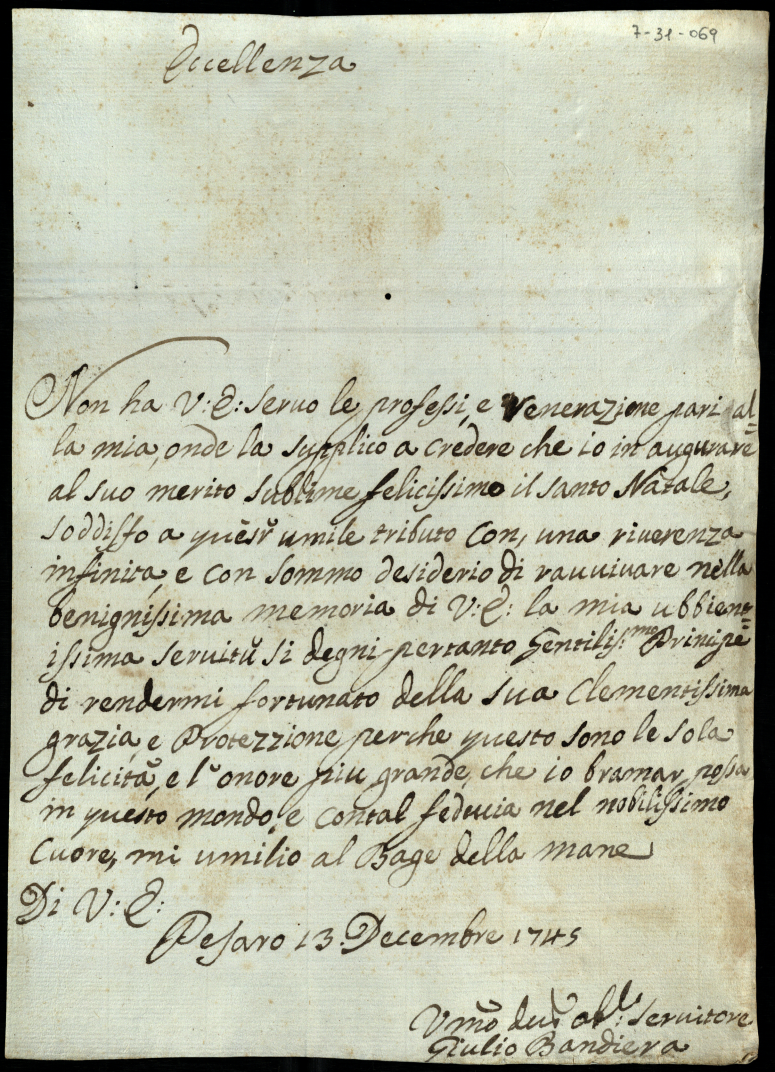 7-31-069
Eccellenza
Non ha V: E: seruo le professi, e Venerazione pari al=
la mia, onde la supplico a credere che io in augurare
al suo merito sublime felicissimo il santo Natale,
soddisfo a quest' umile tributo con, una riuerenza
infinita, e con sommo desiderio di rauuiuare nella
benignissima memoria di V: E: la mia ubbient=
issima seruitù si degni pertanto Gentilis:mo Principe
di rendermi fortunato della sua Clementissima
grazia, e Protezzione perche questo sono le sola
felicità, e l'onore piu grande, che io bramar possa
in questo mondo, e contal feducia nel nobilissimo
Cuore, mi umilio al Bage della mane
Di V: E:
Pesaro 13. Decembre 1745
Vmo seruitore
Giulio Bandiera